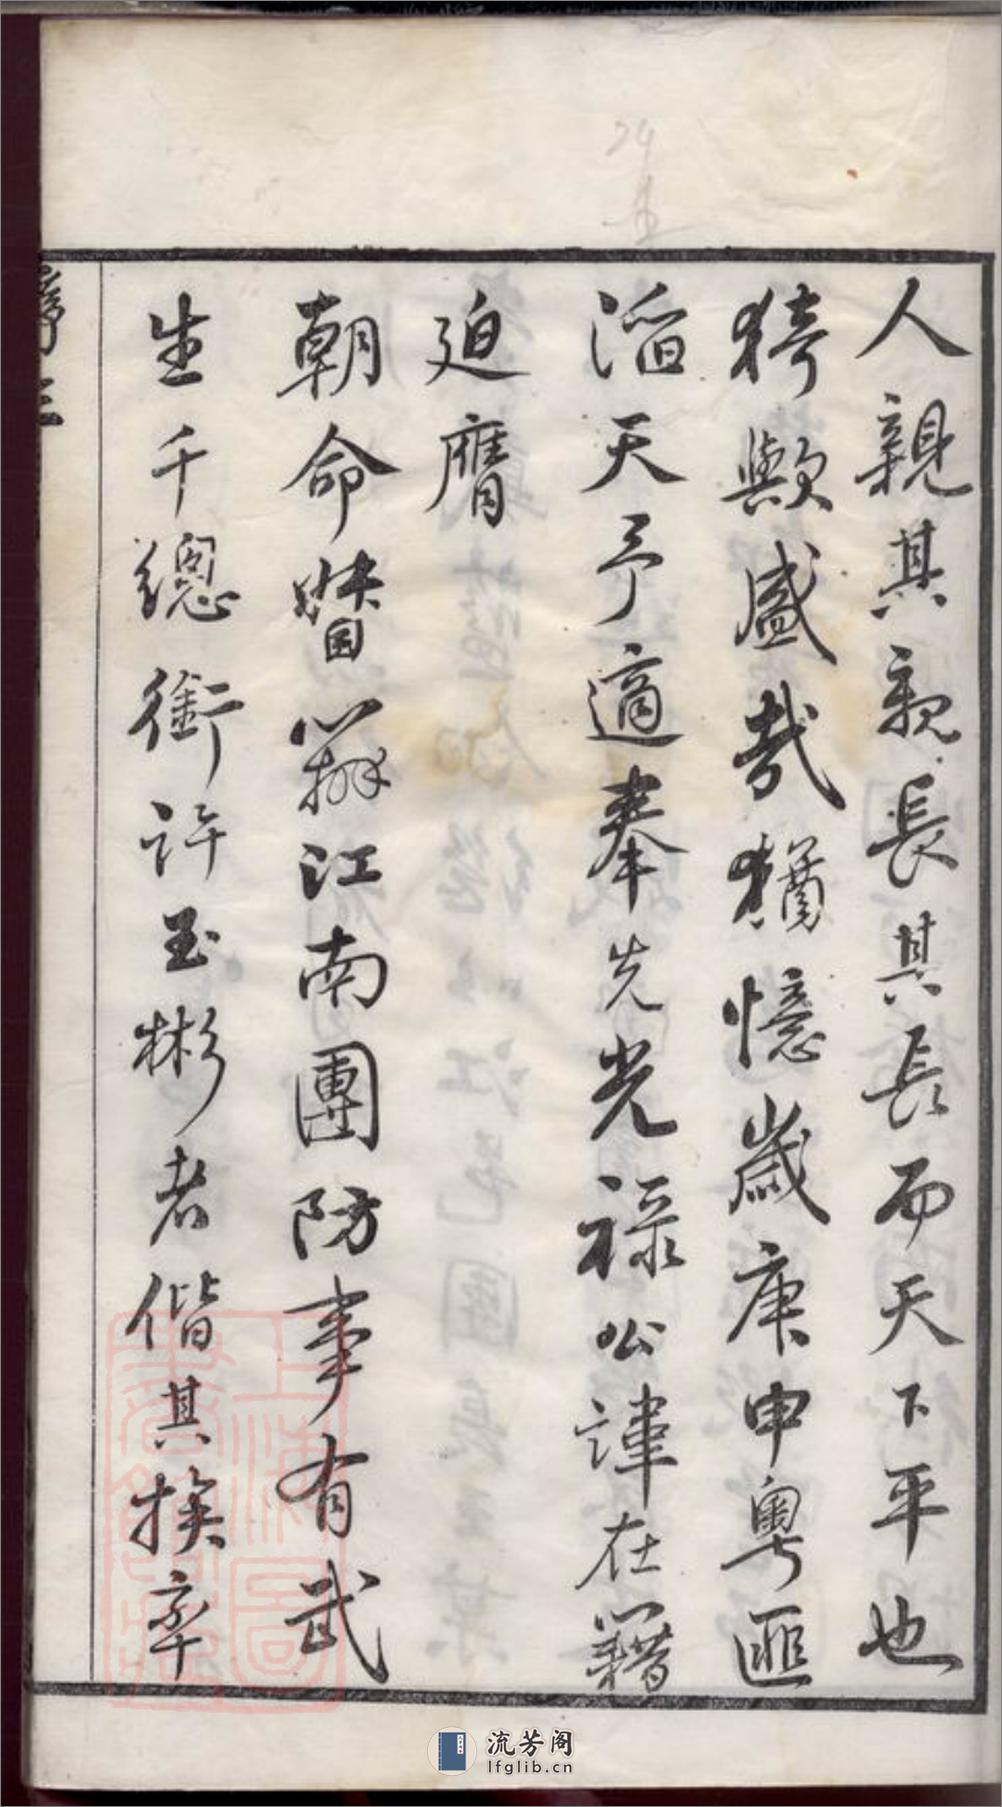 人親其親長其長而天下平也
猗歟盛哉猶憶歲庚申粵匪
滔天予適奉先光祿公諱在籍
迫膺
朝命督辦江南團防事有武
生千總銜許玉彬者偕其族率
序 三
上海圖書館藏
流芳阁
lfglib.cn